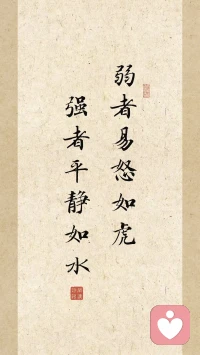 弱者易怒如虎
强者平静如水